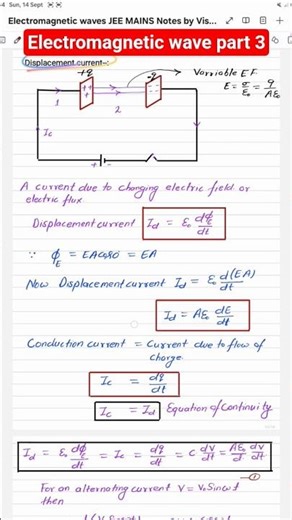 Sun, 14 Sept
Electromagnetic waves JEE MAINS Notes by Vis...
Electromagnetic wave part 3
Displacement current-:
+q
-q
Varriable EF
E = σ/ε₀ = q/Aε₀
1
2
Ic
+
-
A current due to changing electric field or
electric flux
Displacement current Id = ε₀ dϕE/dt
∵ ϕE = EA cos0 = EA
Now Displacement current Id = ε₀ d(EA)/dt
Id = Aε₀ dE/dt
Conduction current = Current due to flow of
charge
Ic = dq/dt
Ic = Id Equation of Continuity
Id = ε₀ dϕE/dt = Ic = dq/dt = C dV/dt = Aε₀/d dV/dt
①
For an alternating current V = V₀ Sin ωt
then